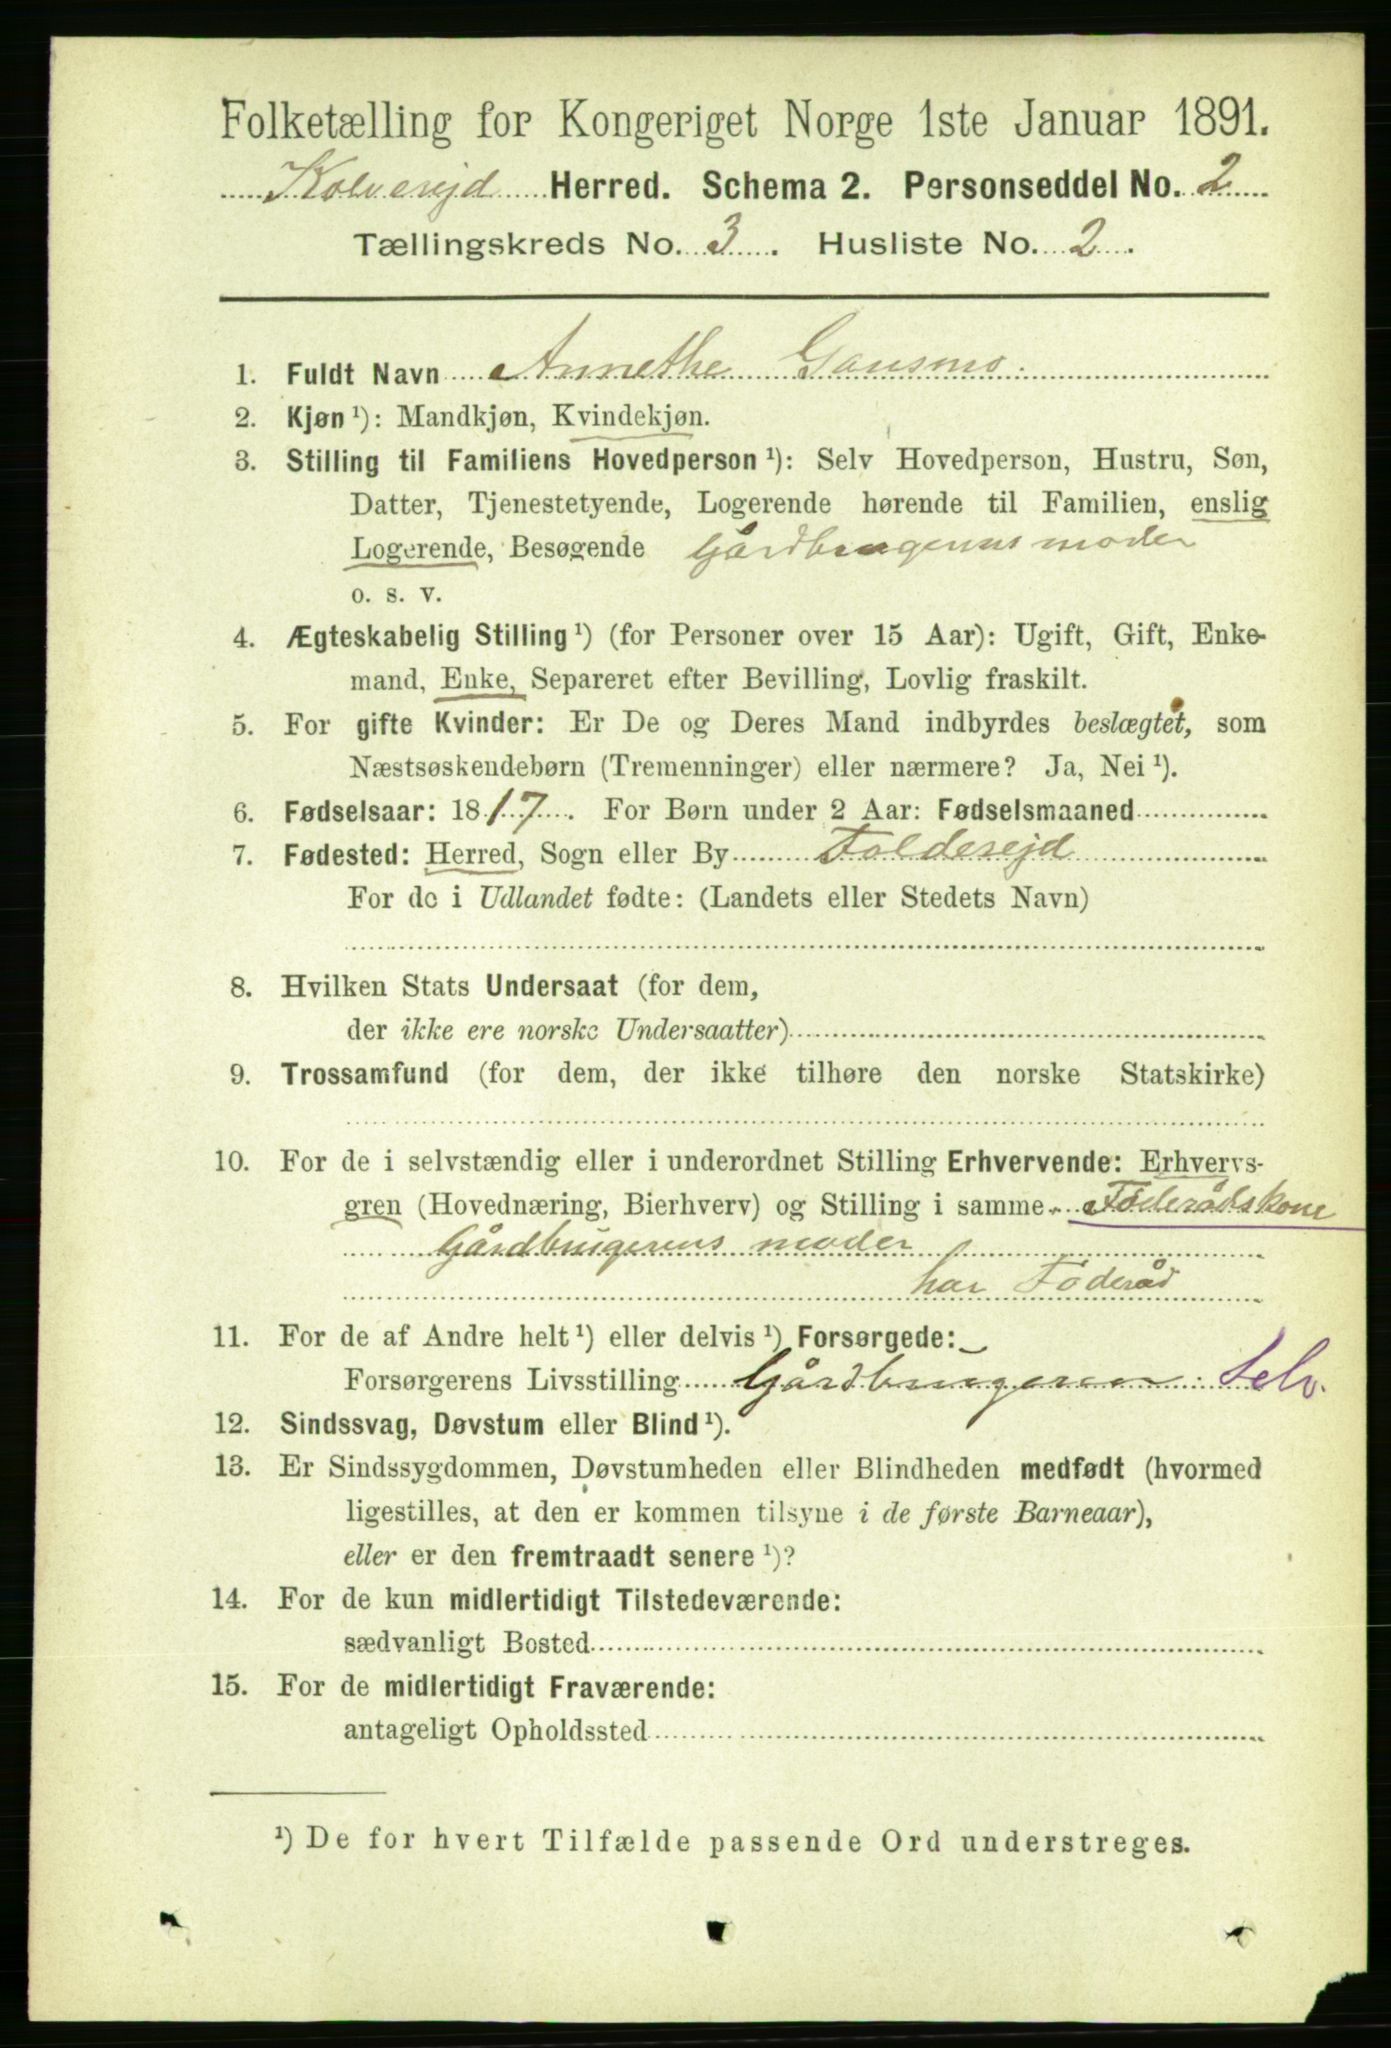 Folketælling for Kongeriget Norge 1ste Januar 1891.
Kolverejd Herred. Schema 2. Personseddel No. 2
Tællingskreds No. 3. Husliste No. 2.
1. Fuldt Navn Annethe Gausmo.
2. Kjøn ¹): Mandkjøn, Kvindekjøn.
3. Stilling til Familiens Hovedperson ¹): Selv Hovedperson, Hustru, Søn,
Datter, Tjenestetyende, Logerende hørende til Familien, enslig
Logerende, Besøgende Gårdbrugerens moder
o. s. v.
4. Ægteskabelig Stilling ¹) (for Personer over 15 Aar): Ugift, Gift, Enke-
mand, Enke, Separeret efter Bevilling, Lovlig fraskilt.
5. For gifte Kvinder: Er De og Deres Mand indbyrdes beslægtet, som
Næstsøskendebørn (Tremenninger) eller nærmere? Ja, Nei ¹).
6. Fødselsaar: 1817. For Børn under 2 Aar: Fødselsmaaned
7. Fødested: Herred, Sogn eller By Folderejd
For de i Udlandet fødte: (Landets eller Stedets Navn)
8. Hvilken Stats Undersaat (for dem,
der ikke ere norske Undersaatter)
9. Trossamfund (for dem, der ikke tilhøre den norske Statskirke)
10. For de i selvstændig eller i underordnet Stilling Erhvervende: Erhvervs-
gren (Hovednæring, Bierhverv) og Stilling i samme Föderådskone
Gårdbrugerens moder
har Föderåd
11. For de af Andre helt ¹) eller delvis ¹) Forsørgede:
Forsørgerens Livsstilling Gårdbrugeren. Selv.
12. Sindssvag, Døvstum eller Blind ¹).
13. Er Sindssygdommen, Døvstumheden eller Blindheden medfødt (hvormed
ligestilles, at den er kommen tilsyne i de første Barneaar),
eller er den fremtraadt senere ¹)?
14. For de kun midlertidigt Tilstedeværende:
sædvanligt Bosted
15. For de midlertidigt Fraværende:
antageligt Opholdssted
¹) De for hvert Tilfælde passende Ord understreges.